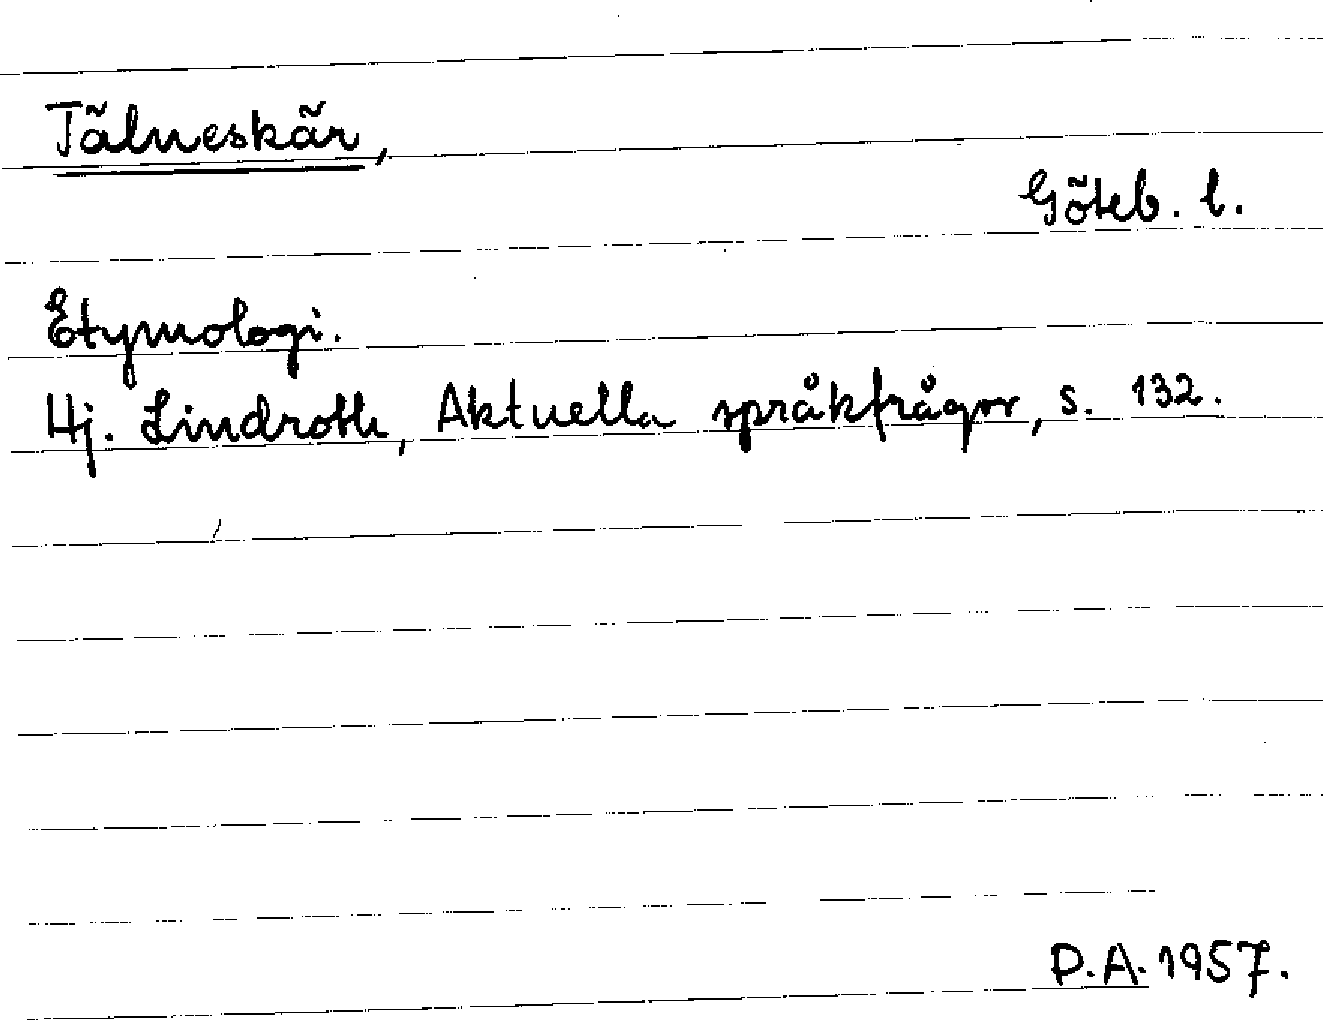 Tälneskär,
Göteb. l.
Etymologi.
Hj. Lindroth, Aktuella språkfrågor, s. 132.
P.A. 1957.